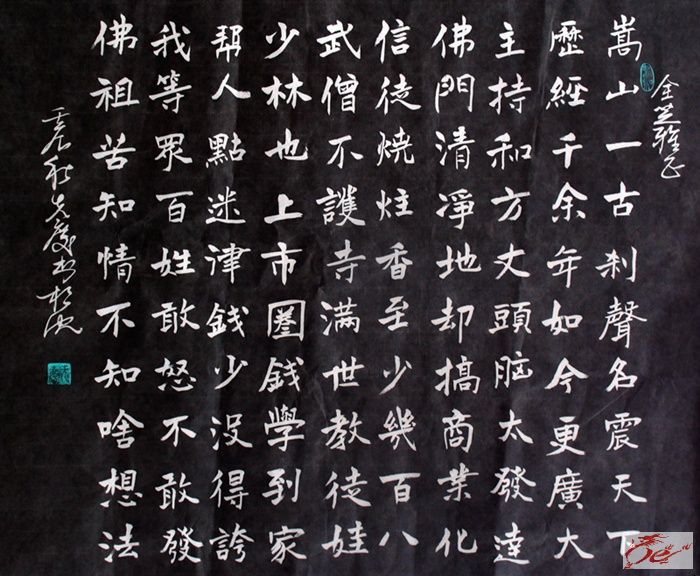 雅正
嵩山一古刹聲名震天下
歷經千余年如今更廣大
主持和方丈頭脑太發達
佛門清凈地却搞商業化
信徒燒炷香至少幾百八
武僧不護寺滿世教徒娃
少林也上市圈錢學到家
幫人點迷津錢少没得誇
我等眾百姓敢怒不敢發
佛祖苦知情不知啥想法
壬辰秋